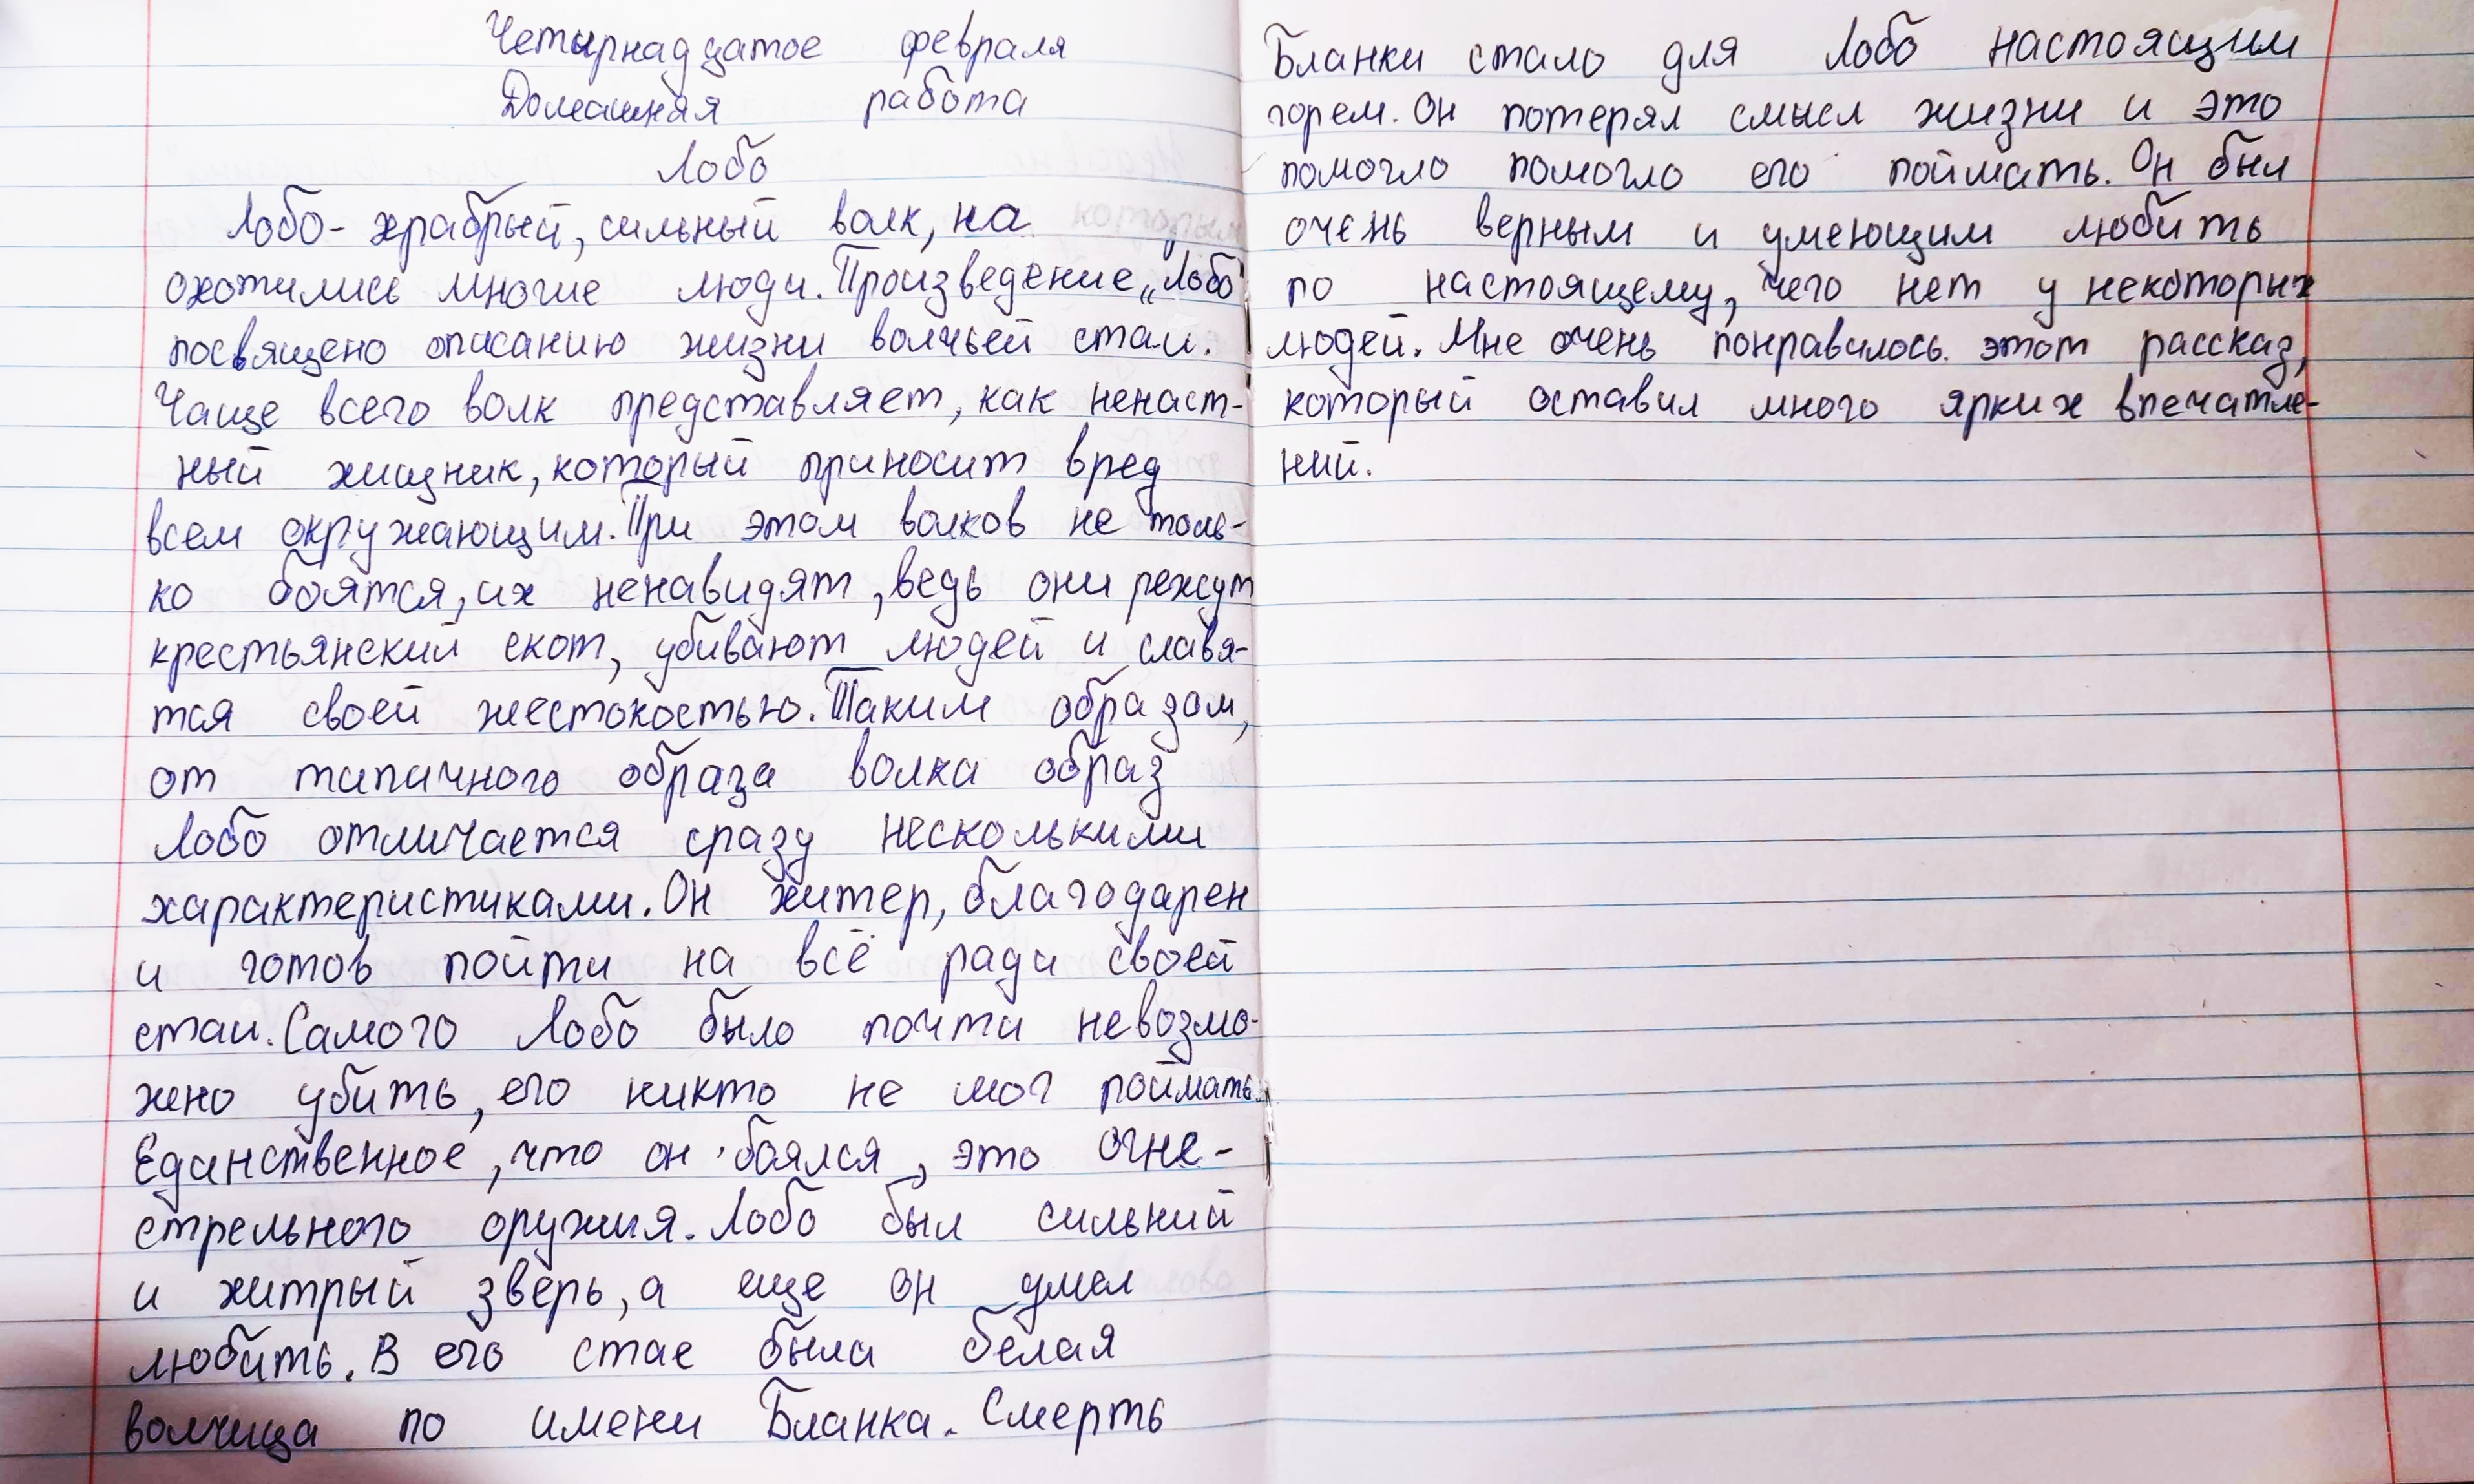 Четырнадцатое февраля
Домашняя работа
Лобо
Лобо- храбрый, сильный волк, на
охотились многие люди. Произведение „Лобо"
посвящено описанию жизни волчьей стаи.
Чаще всего волк представляет, как ненаст-
ный хищник, который приносит вред
всем окружающим. При этом волков не толь-
ко боятся, их ненавидят, ведь они режут
крестьянский скот, убивают людей и славя-
тся своей жестокостью. Таким образом,
от типичного образа волка образ
Лобо отличается сразу несколькими
характеристиками. Он хитер, благодарен
и готов пойти на всё ради своей
стаи. Самого Лобо было почти невозмо-
жно убить, его никто не мог поймать.
Единственное, что он боялся, это огне-
стрельного оружия. Лобо был сильний
и хитрый зверь, а еще он умел
любить. В его стае была белая
волчица по имени Бланка. Смерть
Бланки стало для Лобо настоящим
горем. Он потерял смысл жизни и это
помогло помогло его поймать. Он был
очень верным и умеющим любить
по настоящему, чего нет у некоторых
людей. Мне очень понравилось этот рассказ,
который оставил много ярких впечатле-
ний.